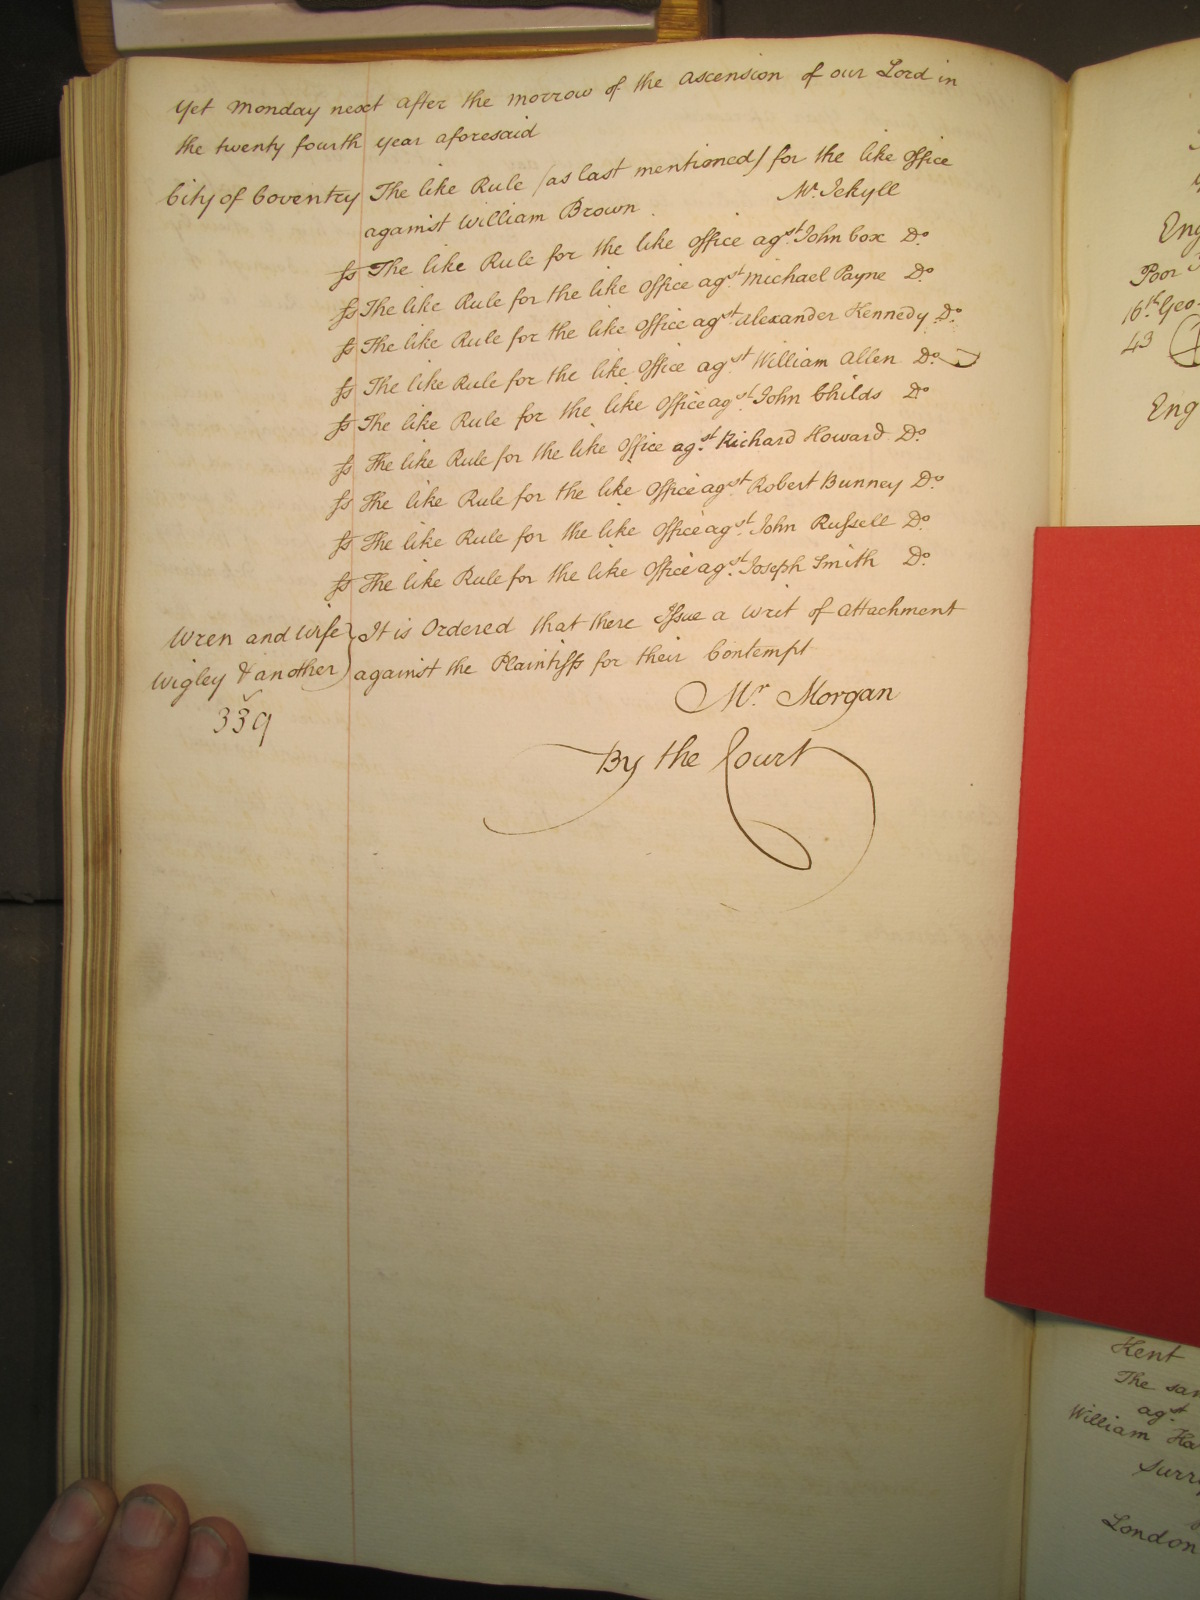 Yet Monday next after the morrow of the Ascension of our Lord in
the twenty fourth year aforesaid
City of Coventry The like Rule (as last mentioned) for the like Office
against William Brown. Mr. Jekyll
ss The like Rule for the like Office agst. John Cox Do.
ss The like Rule for the like Office agst. Michael Payne Do.
ss The like Rule for the like Office agst. Alexander Kennedy Do.
ss The like Rule for the like Office agst. William Allen Do.
ss The like Rule for the like Office agst. John Childs Do
ss The like Rule for the like Office agst. Richard Howard Do.
ss The like Rule for the like Office agst. Robert Bunney Do.
ss The like Rule for the like Office agst. John Russell Do.
ss The like Rule for the like Office agst. Joseph Smith Do.
Wren and Wife } It is Ordered that there Issue a Writ of Attachment
Wigley & another } against the Plaintiffs for their Contempt
Mr. Morgan
339
By the Court
Eng
Poor
16th. Geo.
43
Eng
Kent
The
agst.
William
Surr
London